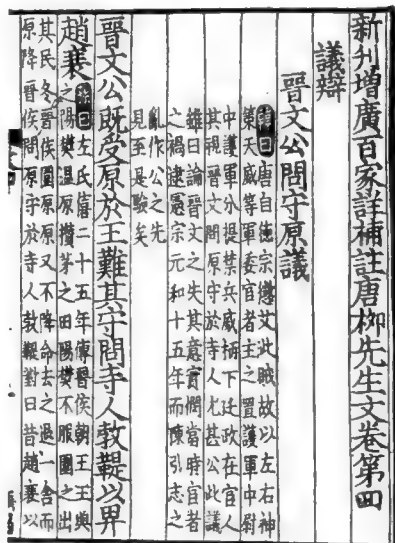 新刊增廣百家詳補註唐柳先生文卷第四
議辯
晉文公問守原議
唐自德宗懲艾此賊故以左右神
策天威等軍委官者主之置護軍中尉
中護軍分提禁兵威柄下廷政在宦人
其視晉文問原守於寺人尤甚公此議
雖曰論晉文之失其意實憫當時宦者
之禍逮憲宗元和十五年而陳弘志之
亂作公之先
見至是驗矣
晉文公既受原於王難其守問寺人敎鞮以畀
趙衰
左氏僖二十五年傳晉侯朝王王與
之陽樊溫原攢茅之田陽樊不服圍之出
其民冬晉侯圍原原又不降命去之退一舍而
原降晉侯問原守於寺人敎鞮對曰昔趙衰以